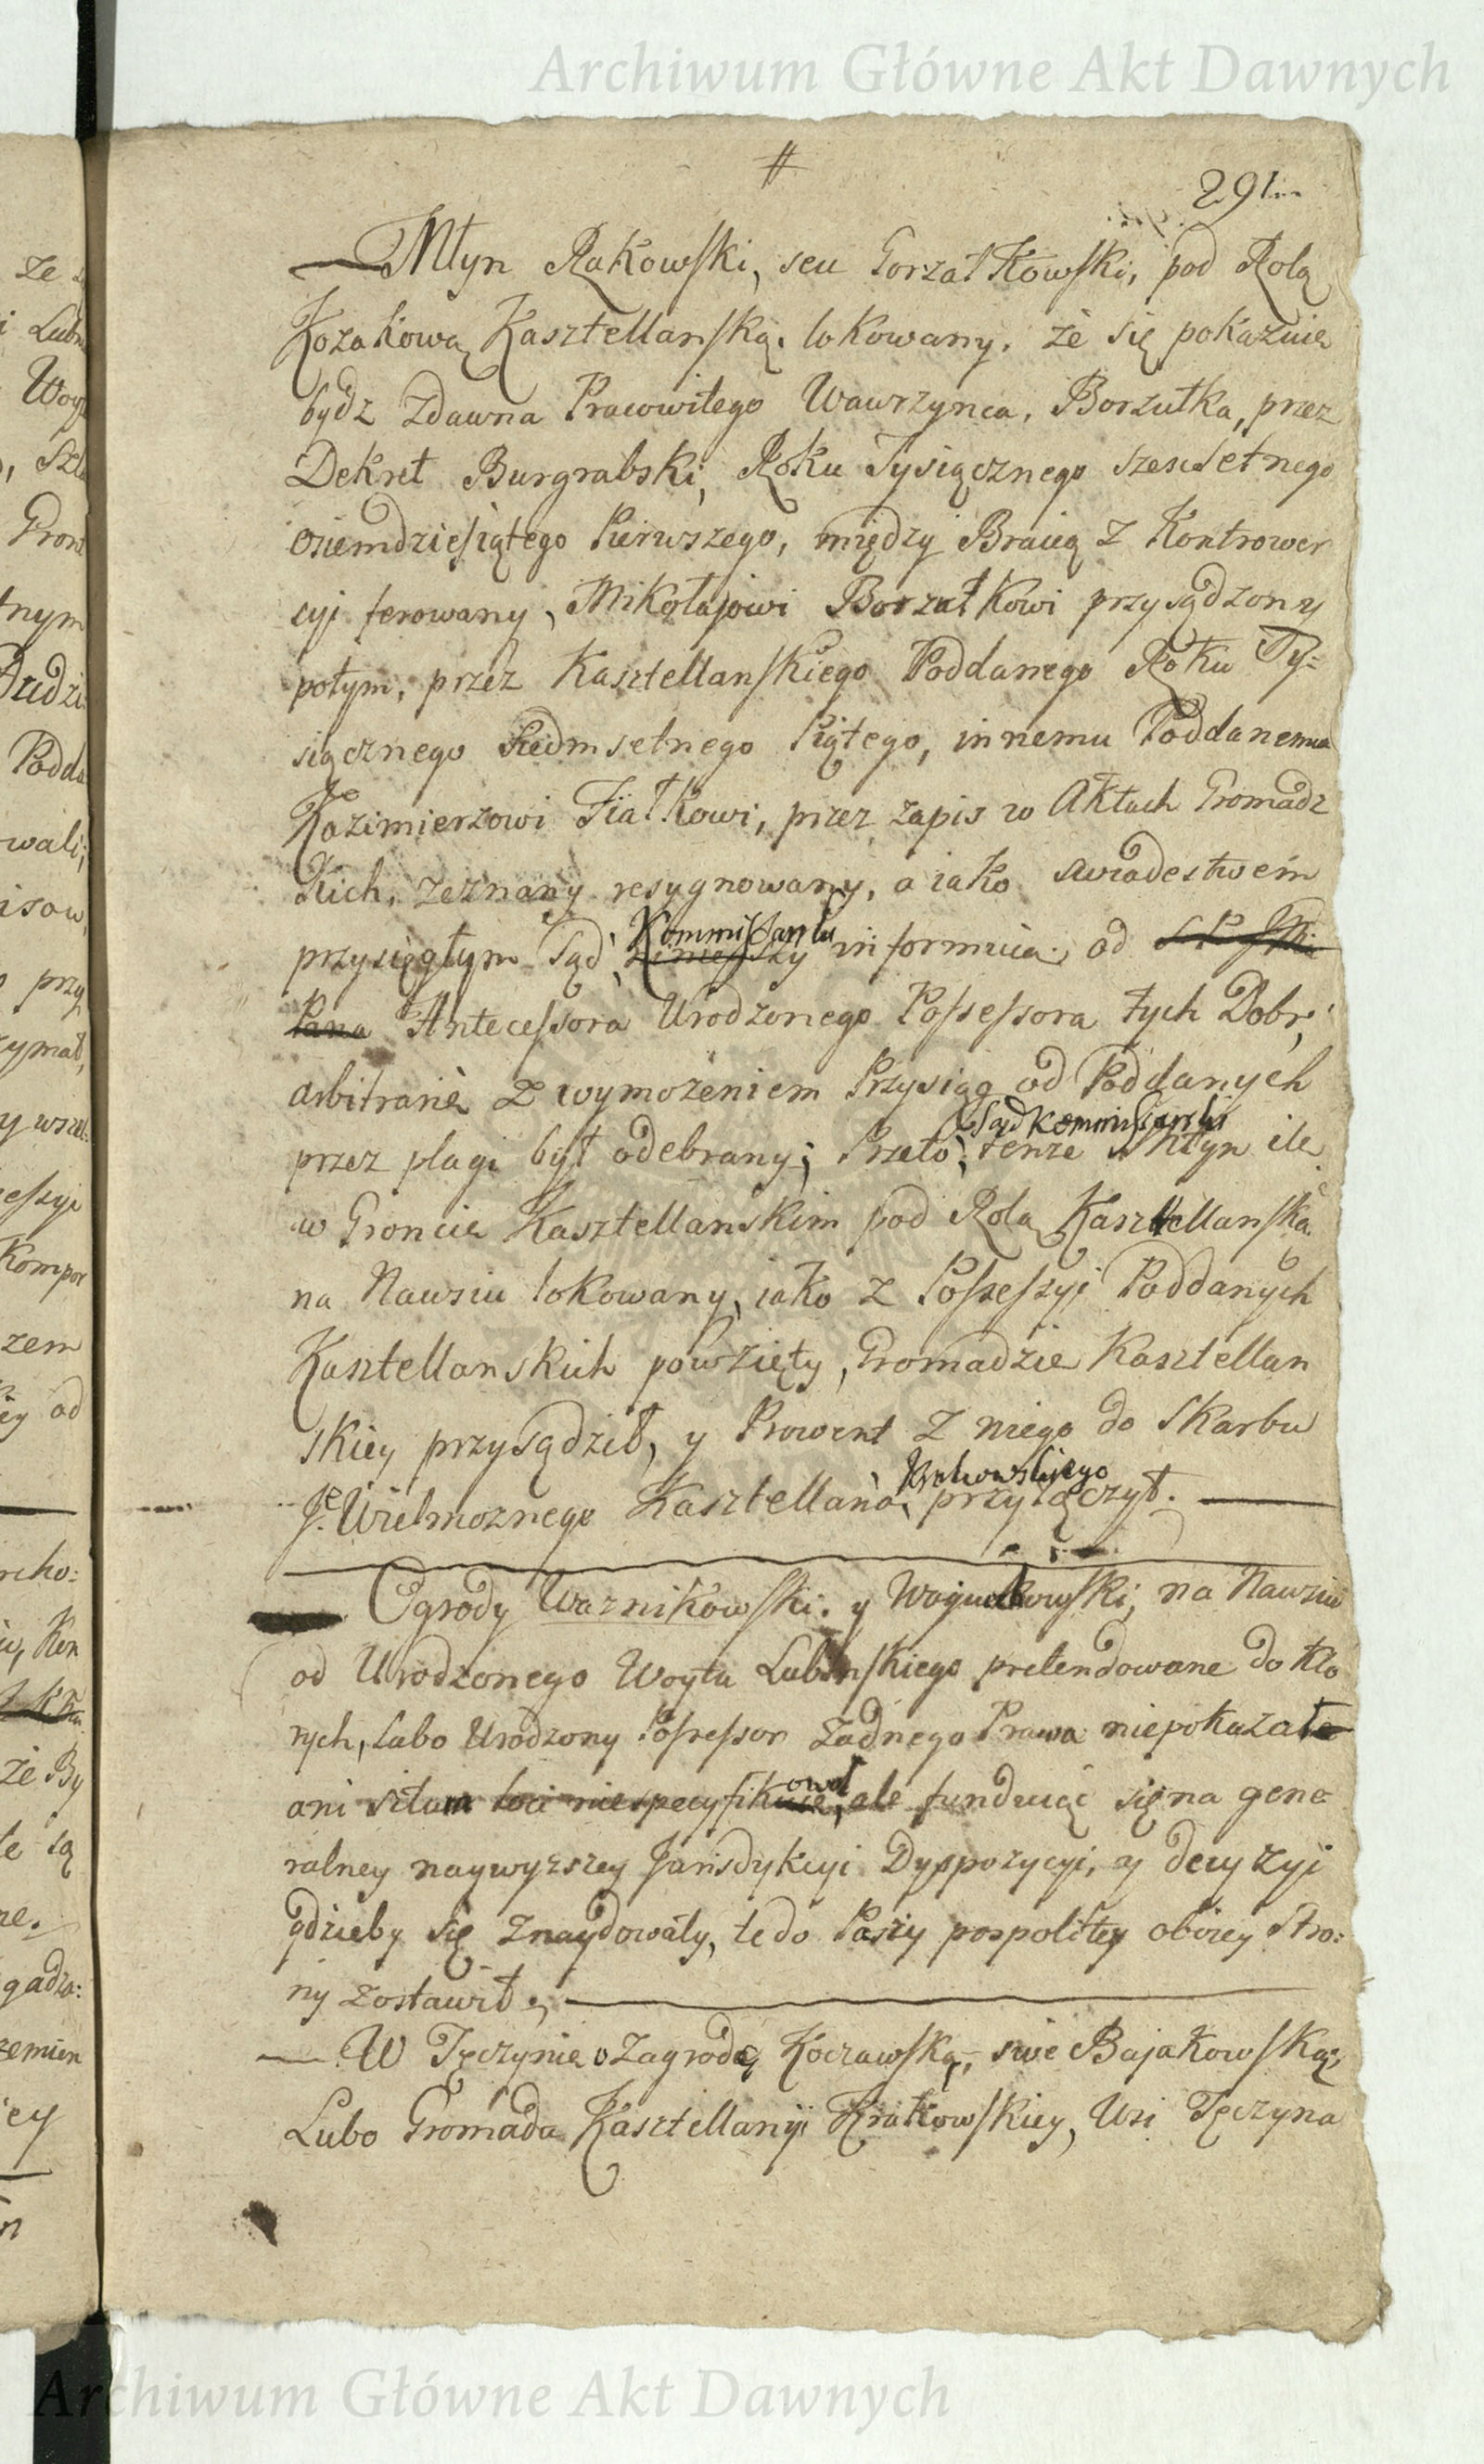 Archiwum Główne Akt Dawnych
#
291
Młyn Rakowski, seu Gorzałkowski, pod Rolą
Kozakową Kasztellanską lokowany, że się pokazuie
bydz zdawna Pracowitego Wawrzynca, Borzutka, przez
Dekret Burgrabski, Roku Tysiącznego szescsetnego
osiemdziesiątego Pierwszego, między Bracią z Kontrower
cyi ferowany, Mikołajowi Borzutkowi przysądzony
potym, przez Kasztellanskiego Poddanego Roku Ty=
siącznego Siedmsetnego Piątego, innemu Poddanemu
Kazimierzowi Fiałkowi, przez zapis w Aktach Gromadz
kich, zeznany resygnowany, a iako swiadestwem
Kommissarski
przysięgłym Sąd, ninieyszy informuia, od
Pana Antecessora Urodzonego Possessora tych Dobr,
arbitranie z wymożeniem Przysiąg od Poddanych
Sąd Kommissarski
przez plagi był odebrany; Przeto, tenze Młyn ile
w Groncie Kasztellanskim pod Rolą Kasztellanską
na Nawsiu lokowany, iako z Possessyi Poddanych
Kasztellanskich powzięty, Gromadzie Kasztellan
skiey przysądził, y Prowent z niego do Skarbu
Krakowskiego
Je. Wielmoznego Kasztellana, przyłączył.
Ogrody Warnikowski. y Woyciechowski, na Nawsiu
od Urodzonego Woyta Lubinskiego pretendowane do kto
rych, Lubo Urodzony Possessor żadnego Prawa niepokazał
ował
ani situm loci niespecyfikuie, ale funduiąc się na gene
ralney naywyzszey Jurisdykcyi Dyspozycyi, y decyzyi
gdzieby się znaydowały, te do Paszy pospolitey oboiey Stro=
ny zostawił,
W Tęczynie o Zagrodę Koczawską, sive Bajakowską,
Lubo Gromada Kasztellanyi Krakowskiey, Wsi Tęczyna
Archiwum Główne Akt Dawnych